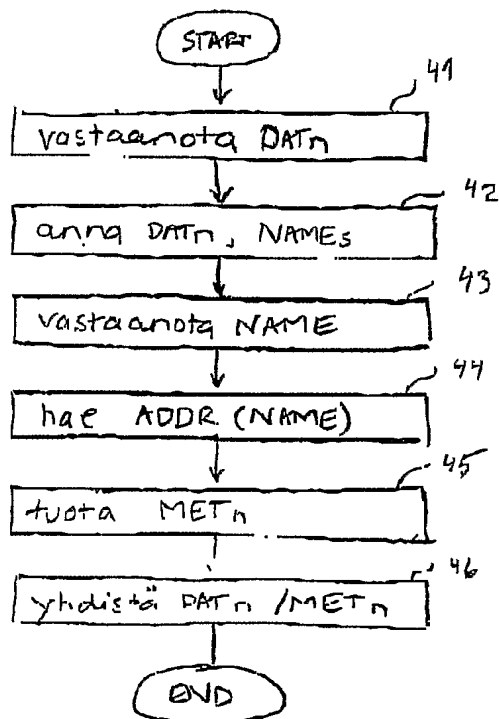 START
41
vastaanota DATn
42
anna DATn, NAMEs
43
vastaanota NAME
44
hae ADDR (NAME)
45
tuota METn
46
yhdistä DATn /METn
END